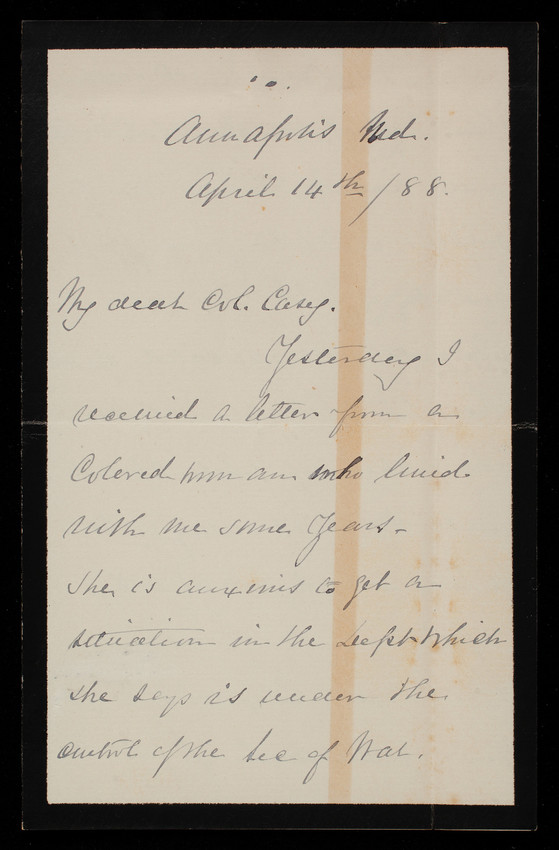 Annapolis Md.
April 14th / 88.
My dear Col. Casey.
Yesterday I
received a letter from a
Colored woman who lived
with me some years -
She is anxious to get a
situation in the Dept which
she says is under the
control of the Sec of War.